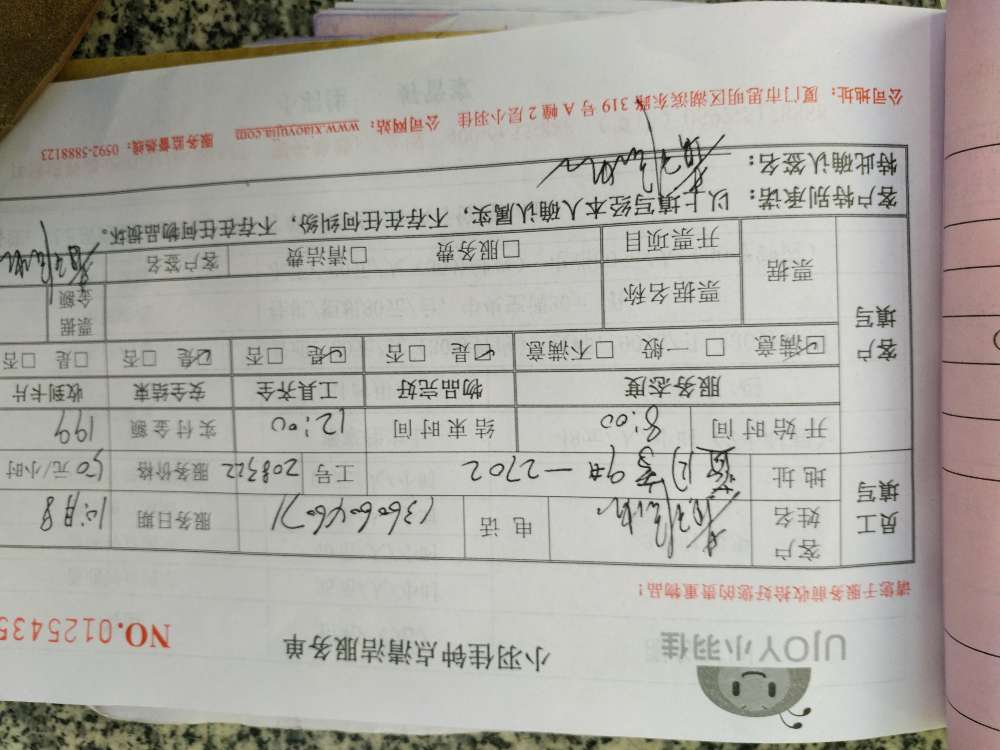 UJOY小羽佳
小羽佳钟点清洁服务单
NO.0125435
请您于服务前收拾好您的贵重物品!
员工填写 客户姓名 电话 13606046071 服务日期 10月8
地址 9# 2702 工号 208322 服务价格 50元/小时
开始时间 8:00 结束时间 12:00 实付金额 199
客户填写 服务态度 物品完好 工具齐全 安全结束 收到卡片
☑满意 □一般 □不满意 ☑是 □否 ☑是 □否 ☑是 □否 □是 □否
票据 票据名称 票据金额
开票项目 □服务费 □清洁费 客户签名
客户特别承诺:以上填写经本人确认属实,不存在任何纠纷,不存在任何物品损坏。
特此确认签名:
公司地址:厦门市思明区湖滨东路319号A幢2层小羽佳 公司网站:www.xiaoyujia.com 服务监督热线:0592-5888123